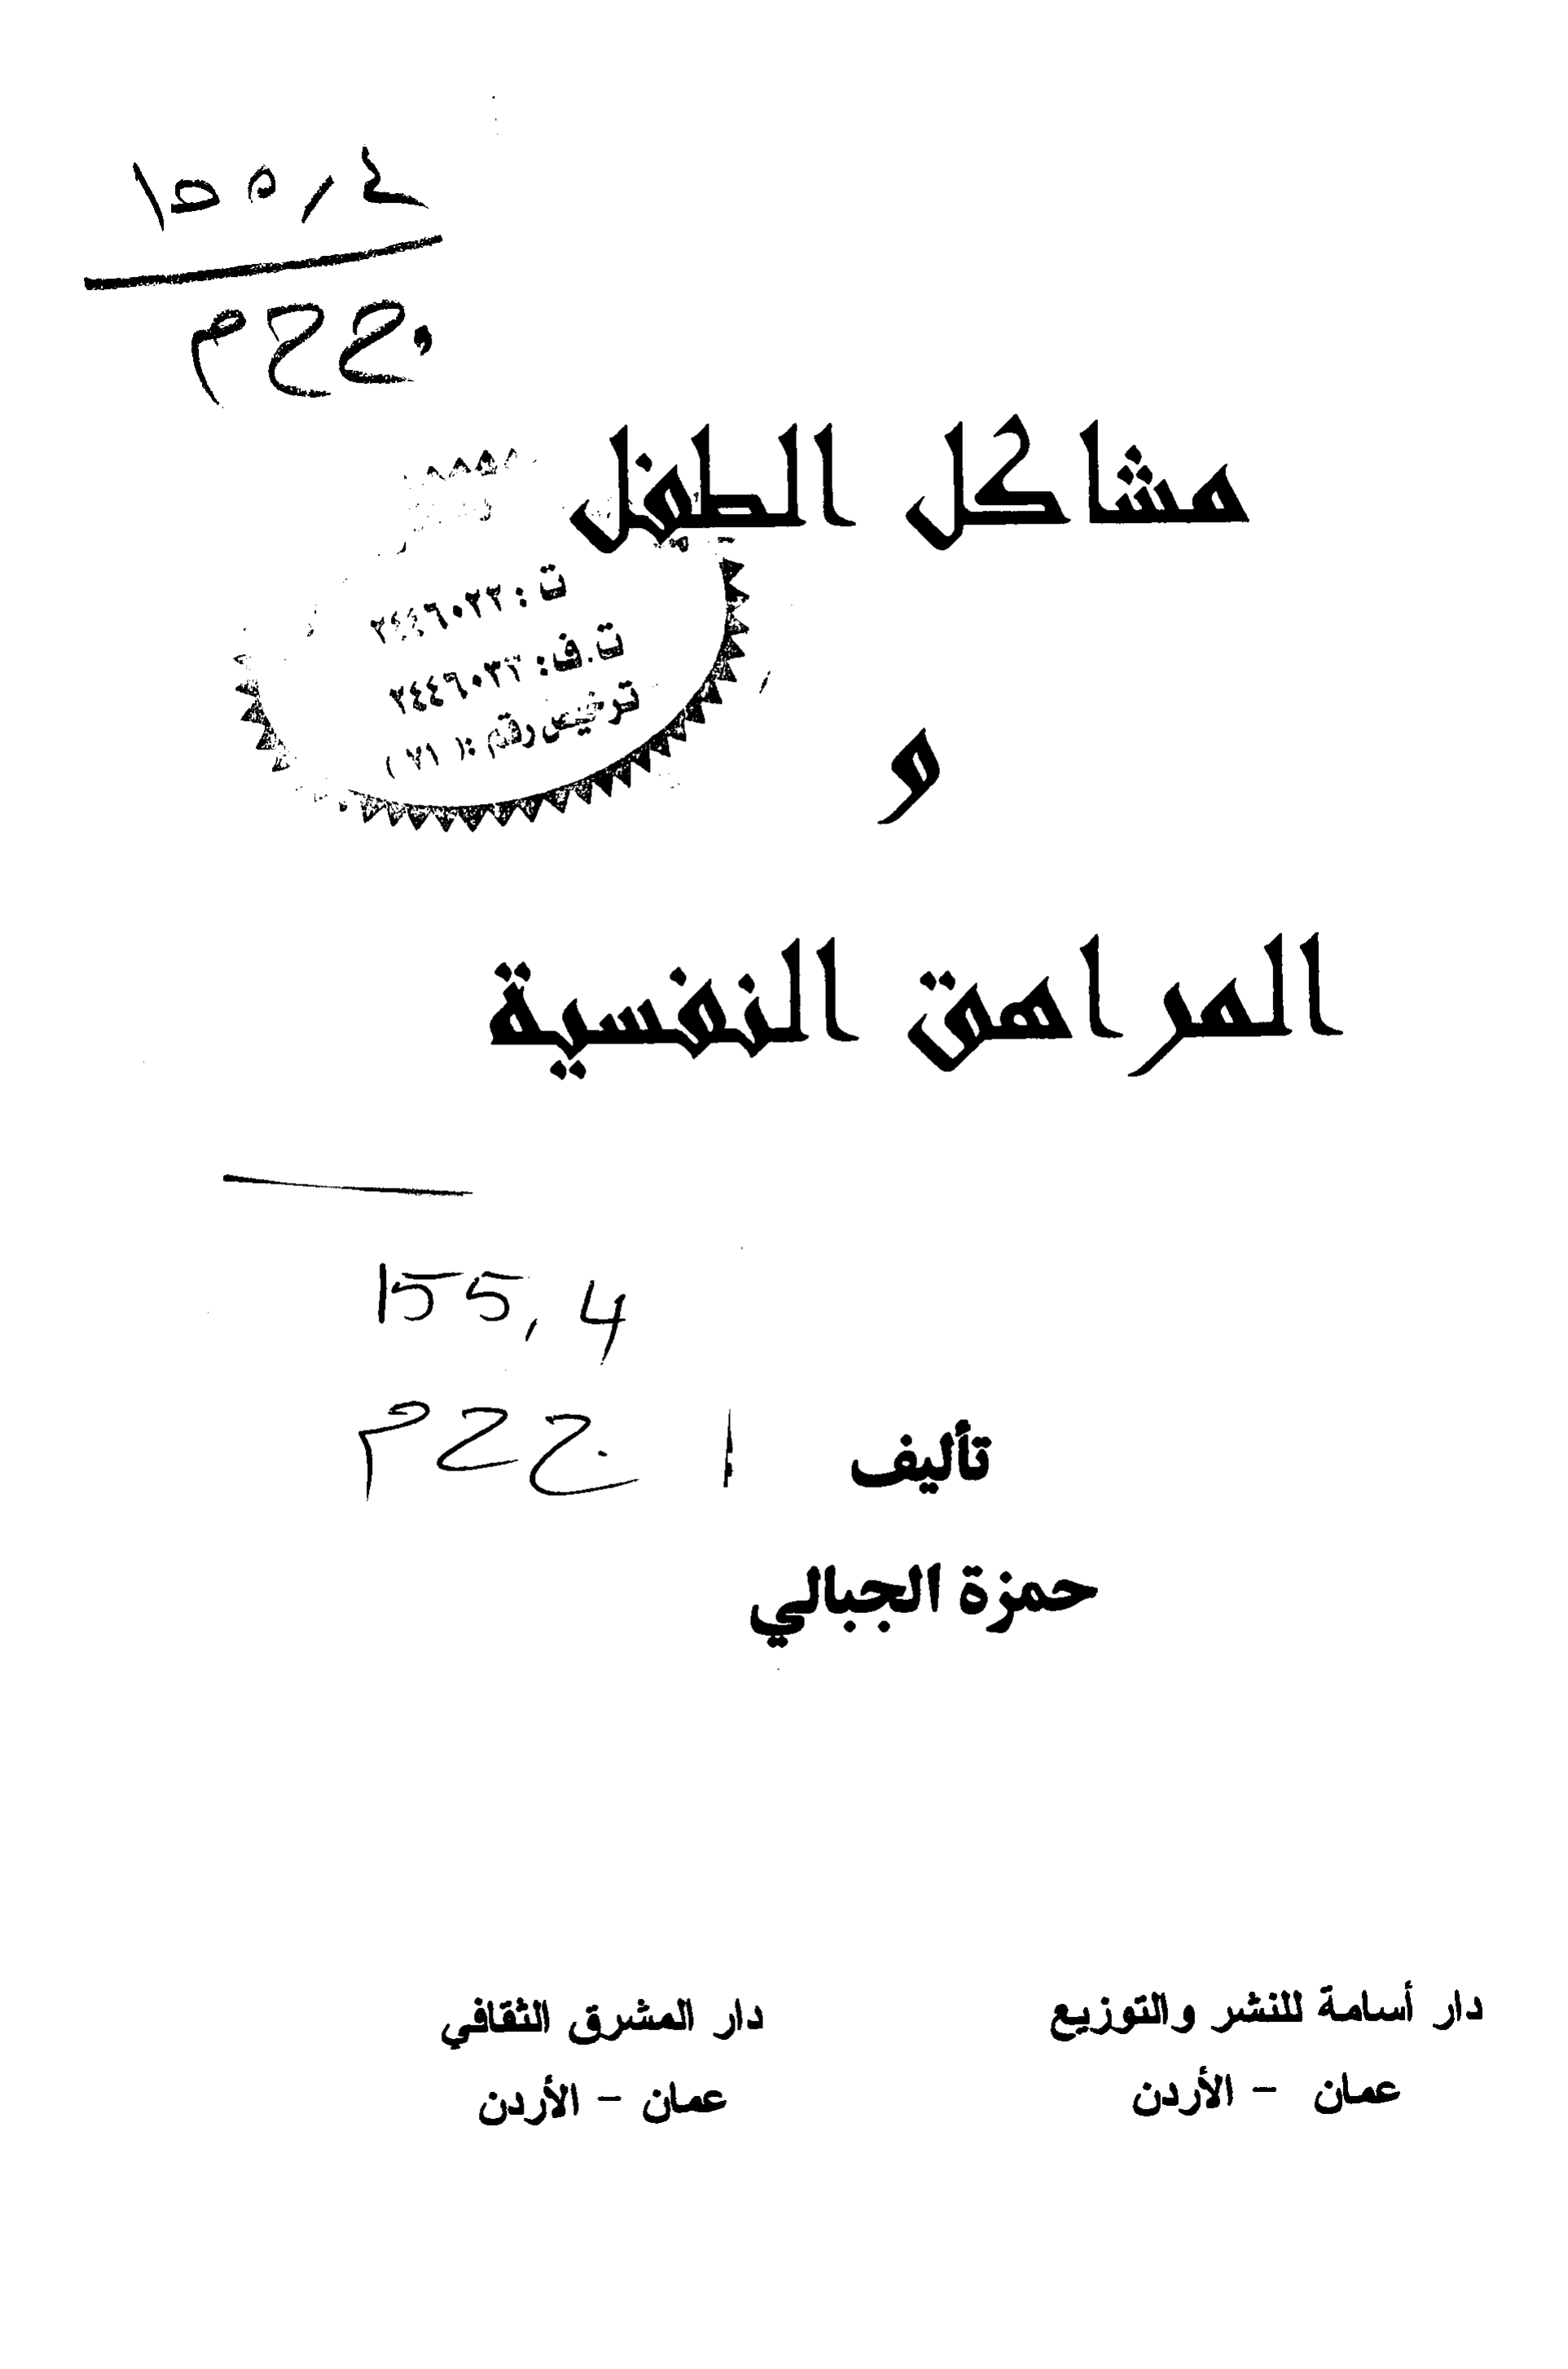 ١٥٥,٤
ج ح م
مشاكل الطفل
ت : ٢٤٤٦٠٢٢
ت.ف: ٢٤٤٦٠٣٢
ترخيص رقم :( ٧١ )
و
المراهق النفسية
155,4
ج ح م
تأليف
حمزة الجبالي
دار أسامة للنشر والتوزيع
عمان - الأردن
دار المشرق الثقافي
عمان - الأردن